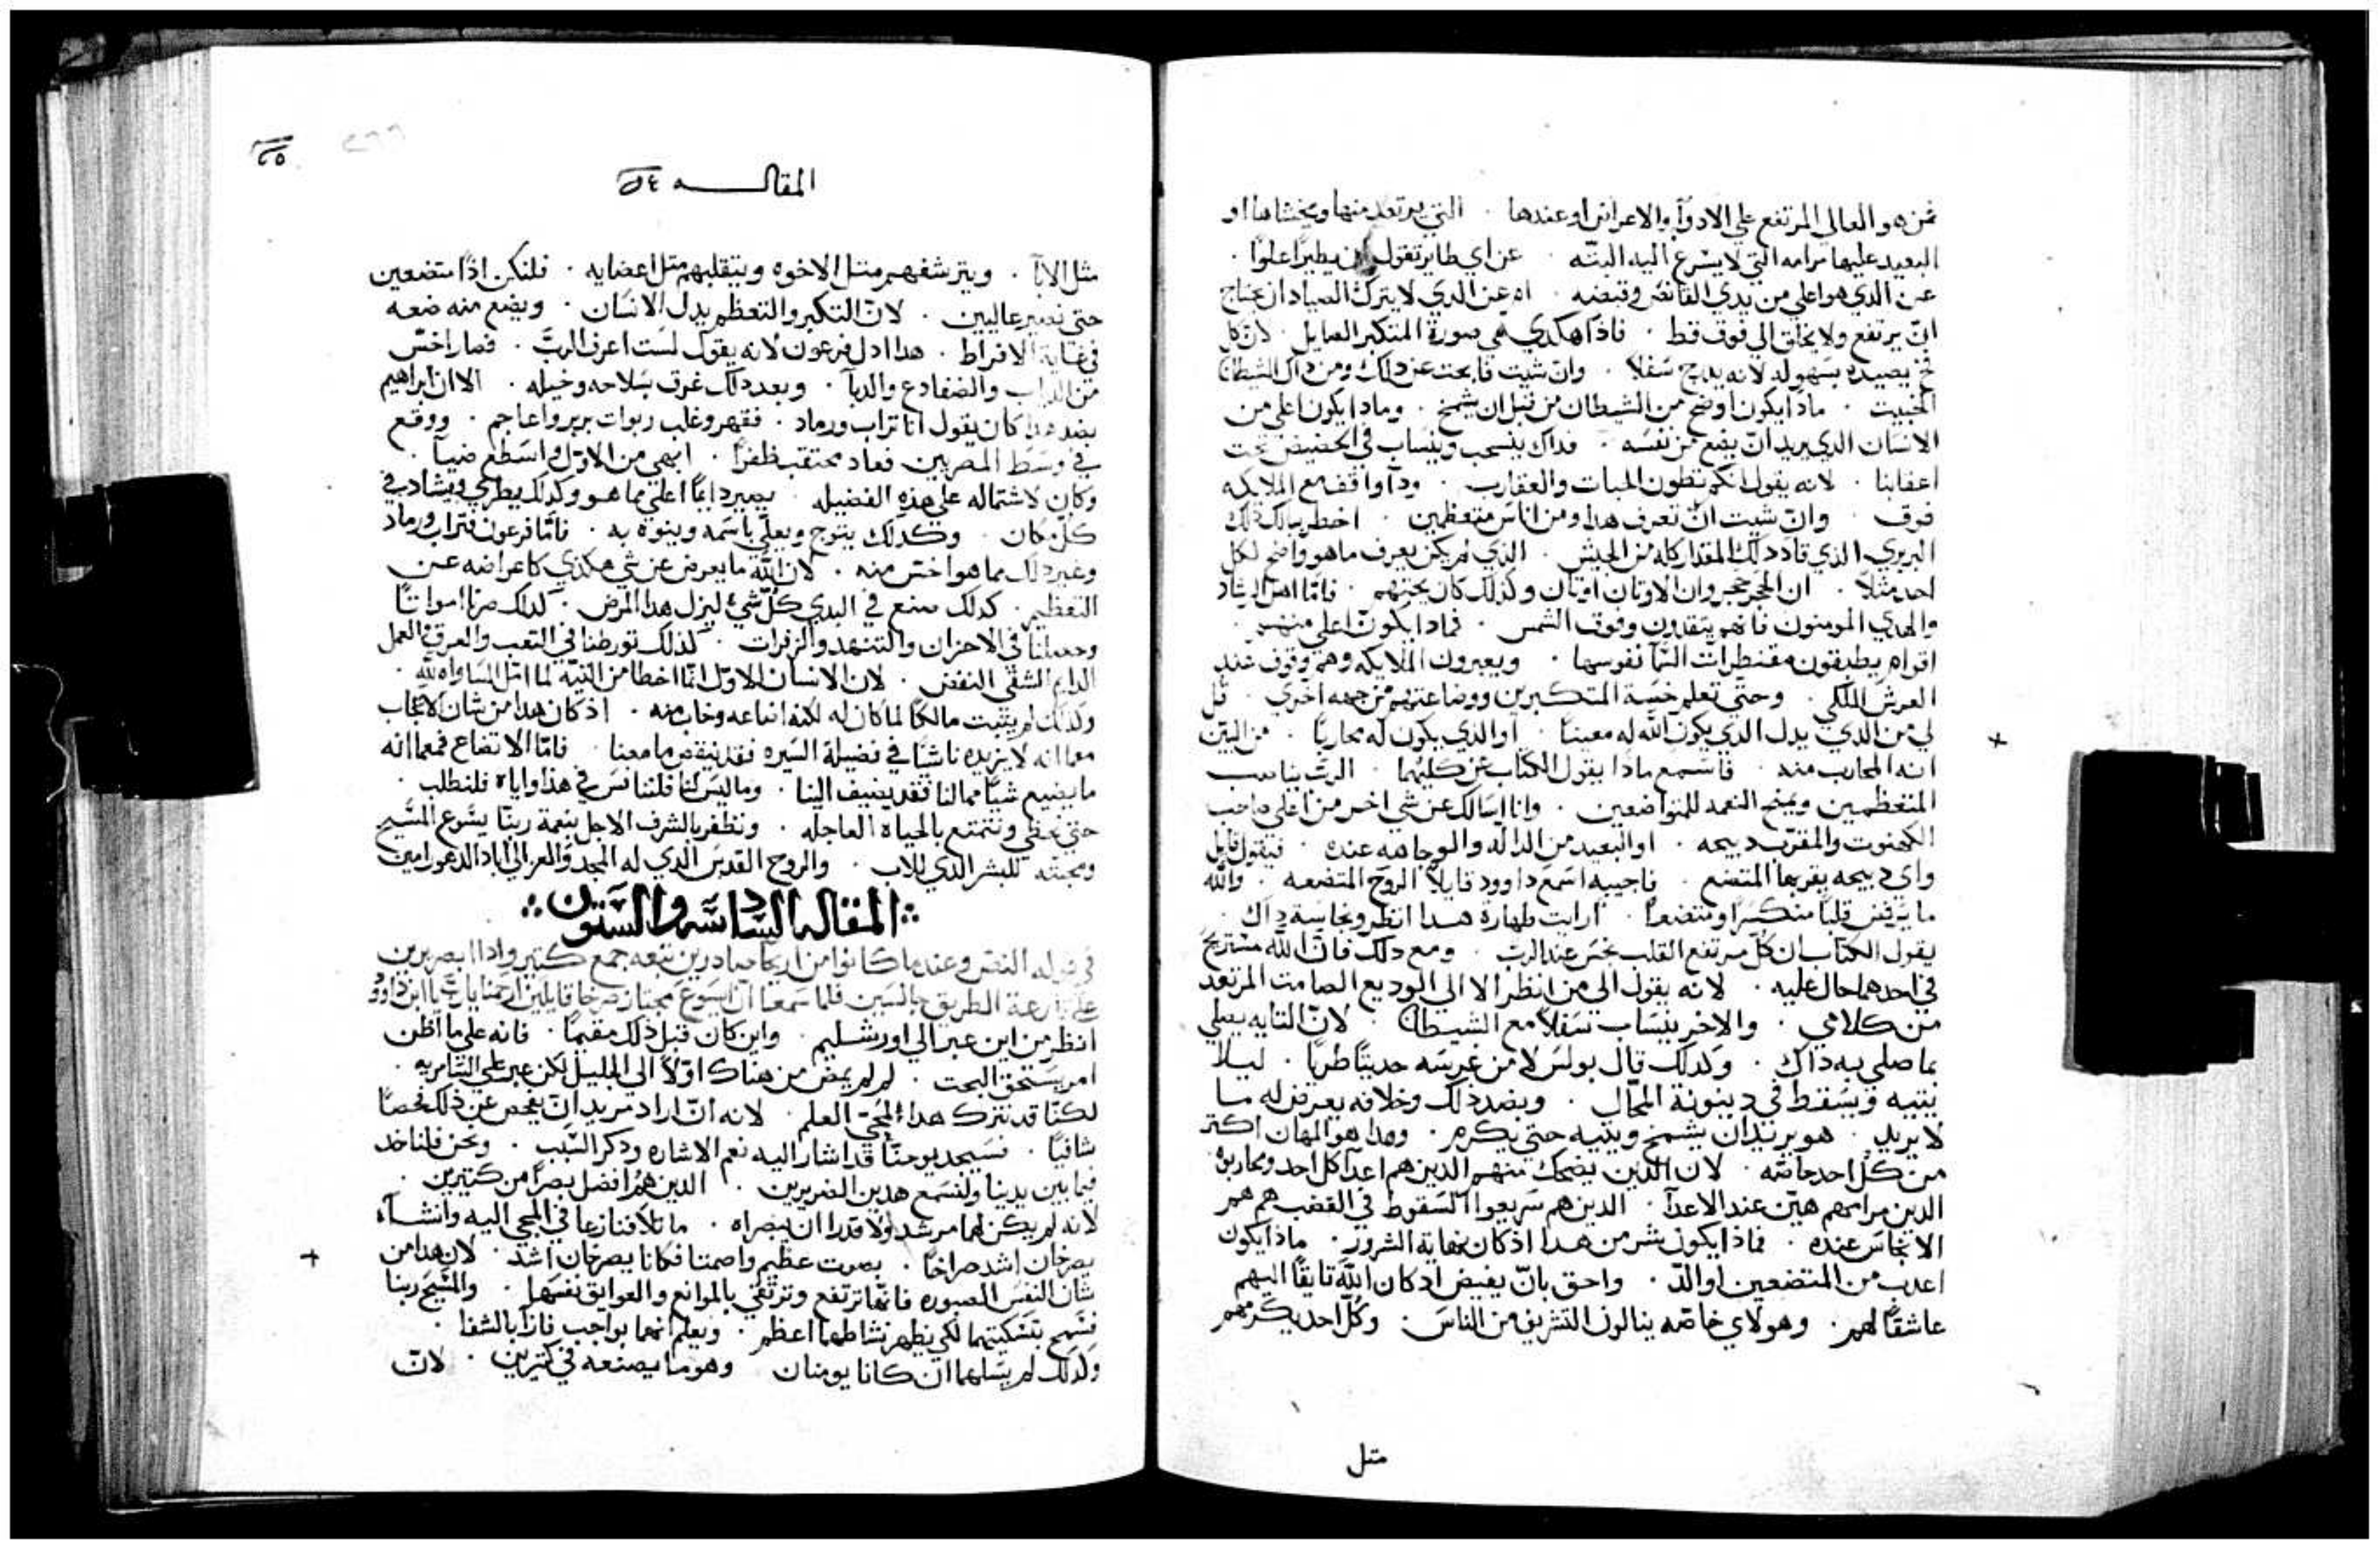 فمن هو العالي المرتفع علي الادوآ والاعراض او عندها . التي يرتعد منها ويخشاها او
البعيد عليها مرامه التي لا يسرع اليه البتّه . عن اي طاير تقول ان يطير اعلوا .
عن الذي هو اعلي من يدي القانص وقبضته . ام عن الذي لا يترك الصياد ان يحتاج
انّ يرتفع ولا يحلق الي فوق قط . فاذا هكدي هي صورة المتكبر الصايل . لان كل
فخ يصيده بسهوله لانه يدرج سفلا . وان شيت فابحت عن دلك ومن داك الشيطان
الخبيت . مادا يكون اوضع من الشيطان من قبل ان يشمخ . ومادا يكون اعلي من
الانسان الدي يريد انّ يضع من نفسه . فداك ينسحب وينساب في الحضيض تحت
اعقابنا . لانه يقول انكم تطون الحيات والعقارب . ودآ واقف مع الملايكه
فوق . وانّ شيت انّ تعرف هدا ومن اناس متعظمين . اخطر ببالك دلك
البربري الذي قاد دلك المقدار كله من الجيش . الذي لم يكن يعرف ما هو واضح لكل
احد مثلاً . ان الحجر حجر وان الاوتان اوتان وكذلك كان يحبهم . فامّا اهل الرشاد
والهدي المومنون فانهم يتقدون وفوق الشمس . فمادا يكونّ اعلي منهم .
اقوام يطبقون مقنطرات السّمآ نفوسها . ويعبرون الملايكه وهم وقوف عند
العرش الملكي . وحتي تعلم خسّة المتكبرين ووضاعتهم من جهه اخري . قل
لي من الدي يدل الدي يكون اللّه له معيناً . او الذي يكون له محاربًا . من البيّن
انه المحارب منه . فاسمع ماذا يقول الكتاب عن كليهما . الربّ يناصب
المتعظمين ويمنح النعمه للمتواضعين . وانا اسالك عن شي اخر من اعلي صاحب
الكهنوت والمقرّب دبيحه . او البعيد من الدالّه والوجاهه عنده . فيقول قايل
واي دبيحه يقربها المتضع . فاجيبه اسمع داوود قايلاً الروح المتضعه . واللّه
ما يرفض قلبًا منكسرًا ومتضعاً . ارايت طهارة هدا انظر ونجاسة داك .
يقول الكتاب ان كلّ مرتفع القلب نجس عند الربّ . ومع دلك فانّ اللّه مستريح
في احدهما حال عليه . لانه يقول الي من انظر الا الي الوديع الصامت المرتعد
من كلامي . والاخر ينساب سفلاً مع الشيطان . لانّ التايه يصلي
بما صلي به داك . وكدلك قال بولس لا من غرسه حديتًا طريًا . ليلا
يتيه فيسقط في دينونة المحّال . وبضد دلك وخلافه يعرض له ما
لا يريد . هو يريد ان يشمخ ويتيه حتي يكرم . وهدا هو المهان اكتر
من كلّ احد خاصّه . لان الذين يضحك منهم الدين هم اعدآ كل احد ومحاربوه
الدين مراسهم هيّن عند الاعدآ . الدين هم سريعوا السقوط في الغضب هم هم
الانجاس عنده . فماذا يكون شر من هدا اذ كان نهاية الشرور . ماذا يكون
اعدب من المتضعين او الدّ . واحق بانّ يغبيض اد كان اللّه تايقًا اليهم
عاشقًا لهم . وهولاي خاصّه ينالون التشريف من الناس . وكلّ احد يكرمهم
متل
المقاله
مثل الابآ . ويترشفهم متل الاخوه ويتقلبهم متل اعضايه . فلنكن اذًا متضعين
حتي نصير عاليين . لانّ التكبر والتعظم يدل الانسان . ويضع منه ضعه
في غاية الافراط . هدا ادل فرعون لانه يقول لست اعرف الربّ . فصار اخسّ
من الدباب والضفادع والدبآ . وبعد دلك غرق بسلاحه وخيله . الا ان ابراهيم
بضد هدا كان يقول انا تراب ورماد . فقهر وغلب ربوات بربر واعاجم . ووقع
في وسط المصريين فعاد محتقب ظفرًا . ابهي من الاوّل واسطع ضيآ .
وكان لاشتماله علي هذه الفضيله . يصير دايمًا اعلي مما هو وكدلك يطري ويشاد في
كلّ مكان . وكدلك يتوج ويعلي باسمه وينوه به . فامّا فرعون فتراب ورماد
وغير دلك مما هو اخس منه . لان اللّه ما يعرض عن شي هكذي كاعراضه عن
التعظم . كدلك صنع في البدي كلّ شي ليزل هدا المرض . لدلك صرنا امواتًا
وحصلنا في الاحزان والتنهد والزفرات . لذلك تورطنا في التعب والعرق والعمل
الدايم الشقي النغض . لان الانسان الاوّل انّما اخطا من التيّه لما امل المساواه للّه
ولدلك لم يتبت مالكًا لما كان له لكنه اضاعه وخاب منه . اذ كان هدا من شان الاعجاب
مع انه لا يزيده ناشيًا في فضيلة السيره فقد ينقص ما معنا . فامّا الاتضاع فمع انه
ما يضيع شيًا مما لنا فقد يضيف الينا . وما ليس لنا فلننافس في هذا واياه فلنطلب .
حتي نحظي ونتمتع بالحياه العاجله . ونظفر بالشرف الاجل بنعمة ربنّا يسّوع المسّيح
ومحبته للبشر الذي للاب . والروح القدس الذي له المجد والعز الي اباد الدهور امين
المقاله السادسه والستون
في قوله النص وعندما كانوا من اريحا صادرين تبعه جمع كتير واذا ابضريرين
علي قارعة الطريق جالسين فلما سمعا انّ يسوع مجتاز صرخا قايلين ارحمنا يا ربّ يا ابن داوود
انظر من اين عبر الي اورشليم . واين كان قبل ذلك مقيمًا . فانه علي ما اظن
امر يستحق البحت . لم لم يمض من هناك اوّلاً الي الجليل لكن عبر علي السّامريه .
لكنّا قد نترك هدا لمحبّي العلم . لانه انّ اراد مريد انّ يفحص عن ذلك فحصًا
شافيًا . فسيجد يوحنّا قد اشار اليه نعم الاشاره ودكر السّبب . ونحن فلناخد
فيما بين يدينا ولنسمع هدين الضريرين . الدين هما افضل بصرًا من كتيرين .
لانه لم يكن لهما مرشد ولا قدرا ان يبصراه . ما تلافنازعا في المجي اليه وانشاآ
يصرخان اشد صراخًا . بصوت عظيم واصمتا فكانا يصرخان اشد . لان هدا من
شان النفس الصبوره فانّها ترتفع وترتقي بالموانع والعوايق نفسها . والمسّيح ربنا
فسّمح بتسّكيتهما لكي يظهر نشاطهما اعظم . ويعلم انهما بواجب فازا بالشفا .
ولدلك لم يسّلهما ان كانا يومنان . وهو ما يصنعه في كتيرين . لانّ